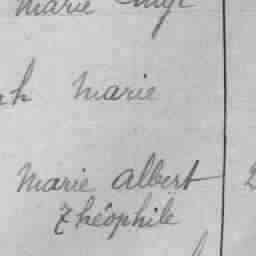 marie
marie
marie albert 2
théophile